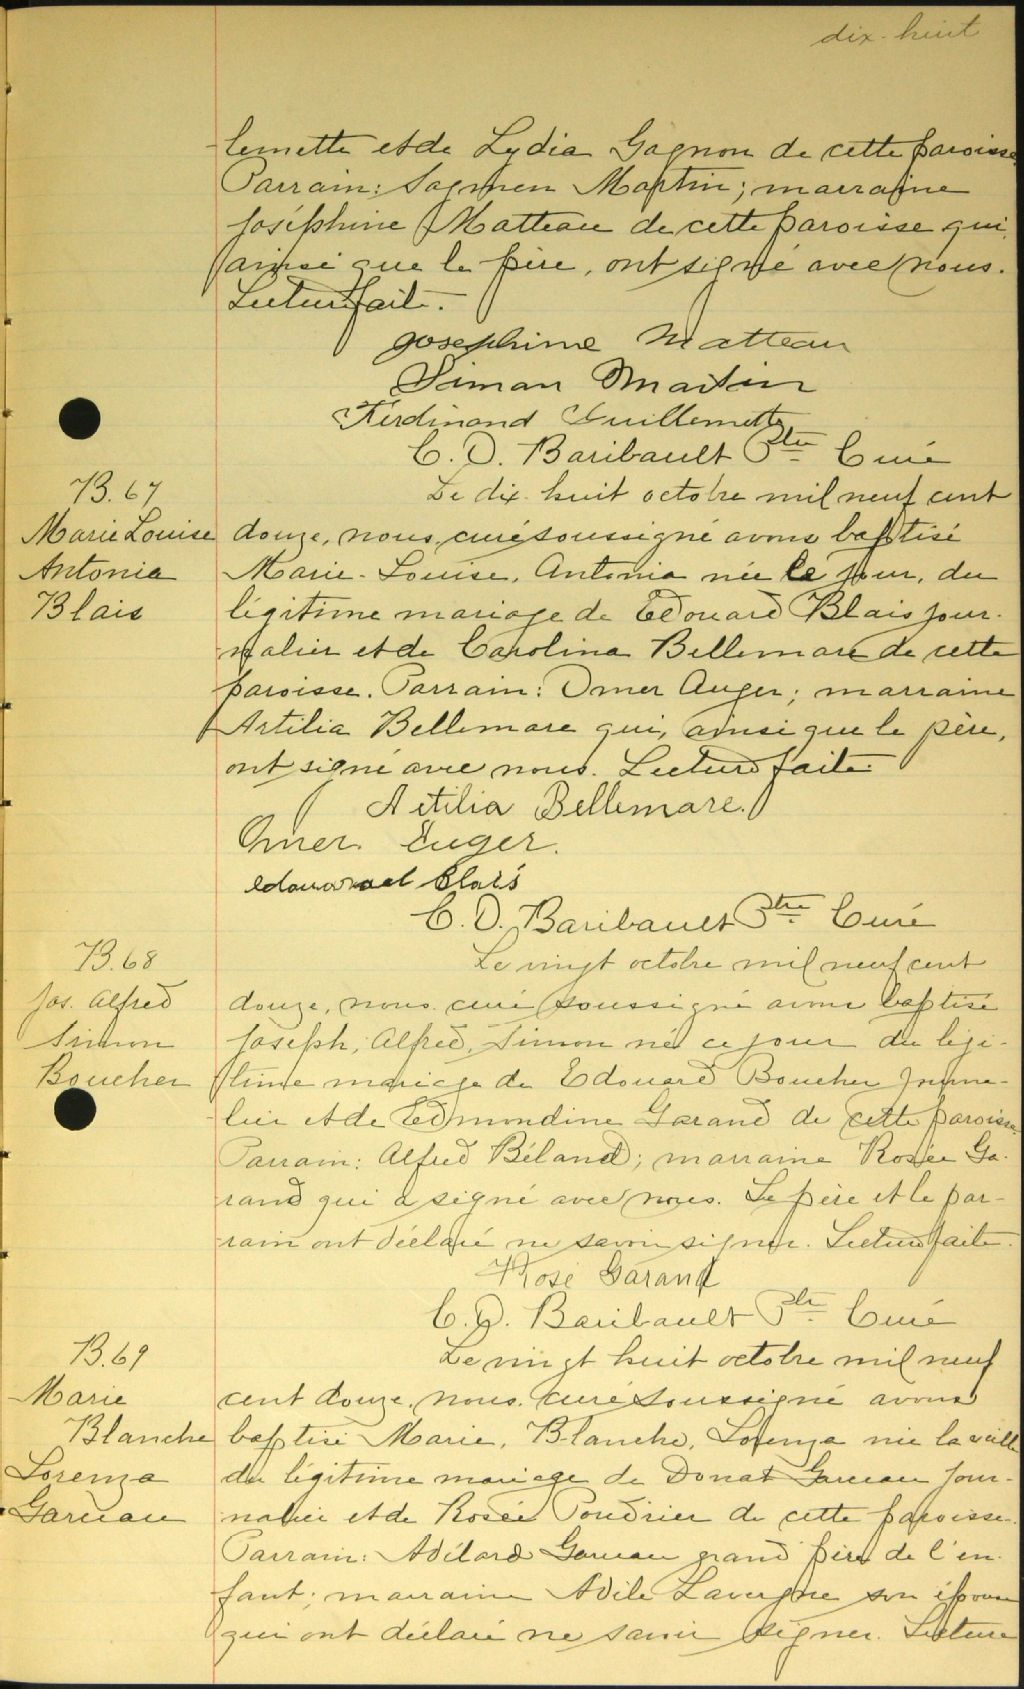 dix-huit
lemette et de Lydia Gagnon de cette paroisse.
Parrain: Martin; marraine
Joséphine Matteau de cette paroisse qui,
ainsi que le père, ont signé avec nous.
Lecture faite.
Josephine Matteau
Simon Martin
Ferdinand Guillemette
C. D. Baribault Ptre Curé
B. 67
Marie Louise
Antonia
Blais
Le dix-huit octobre mil neuf cent
douze, nous, curé soussigné avons baptisé
Marie-Louise, Antonia née le jour, du
légitime mariage de Edouard Blais jour-
nalier et de Carolina Bellemare de cette
paroisse. Parrain: Omer Auger; marraine
Artilia Bellemare qui, ainsi que le père,
ont signé avec nous. Lecture faite.
Artilia Bellemare.
Omer Auger.
edouard Blais
C. D. Baribault Ptre Curé
B. 68
Jos. Alfred
Simon
Boucher
Le vingt octobre mil neuf cent
douze, nous curé soussigné avons baptisé
Joseph, Alfred, Simon né ce jour du légi-
time mariage de Edouard Boucher journa-
lier et de Edmondine Garand de cette paroisse.
Parrain: Alfred Béland; marraine Rosée Ga-
rand qui a signé avec nous. Le père et le par-
rain ont déclaré ne savoir signer. Lecture faite.
Rosé Garand
C. D. Baribault Ptre Curé
B. 69
Marie
Blanche
Lorenza
Garneau
Le vingt huit octobre mil neuf
cent douze, nous, curé soussigné avons
baptisé Marie, Blanche, Lorenza née la veille
du légitime mariage de Donat Garneau jour-
nalier et de Rosée Poudrier de cette paroisse.
Parrain: Adélard Garneau grand père de l'en-
fant; marraine Adile Lavergne son épouse
qui ont déclaré ne savoir signer. Lecture